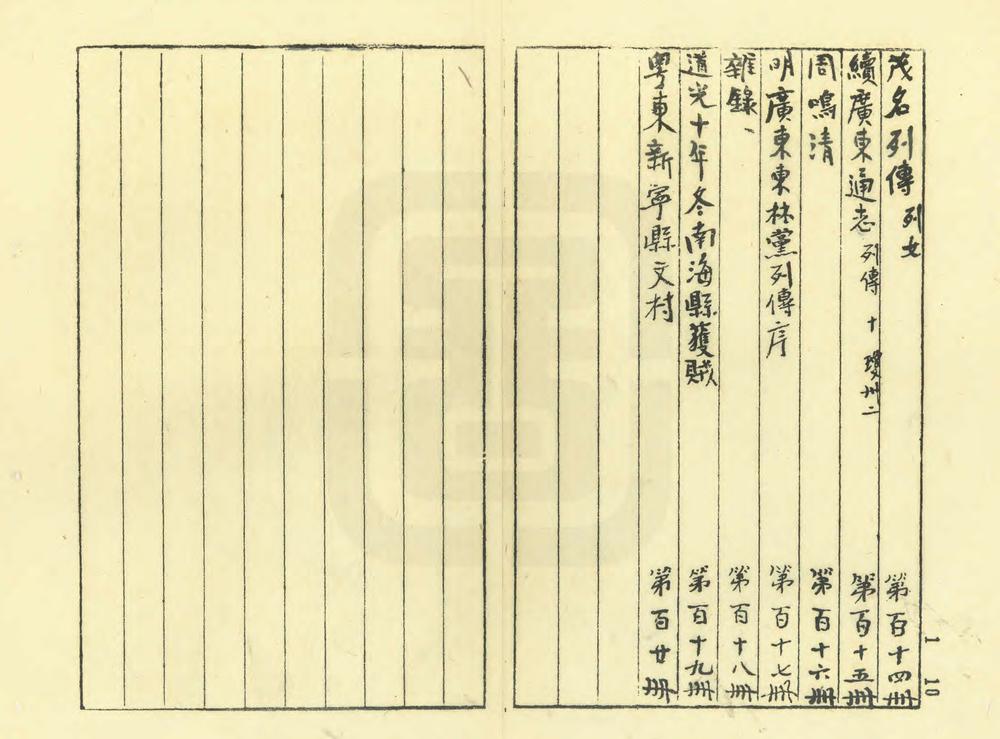 茂名列傳 列女 第百十四冊
續廣東通志 列傳 十 瓊州二 第百十五冊
周鳴清 第百十六冊
明廣東東林黨列傳序 第百十七冊
雜錄、 第百十八冊
道光十年冬南海縣獲賊 第百十九冊
粵東新寧縣文村 第百廿冊
1 10